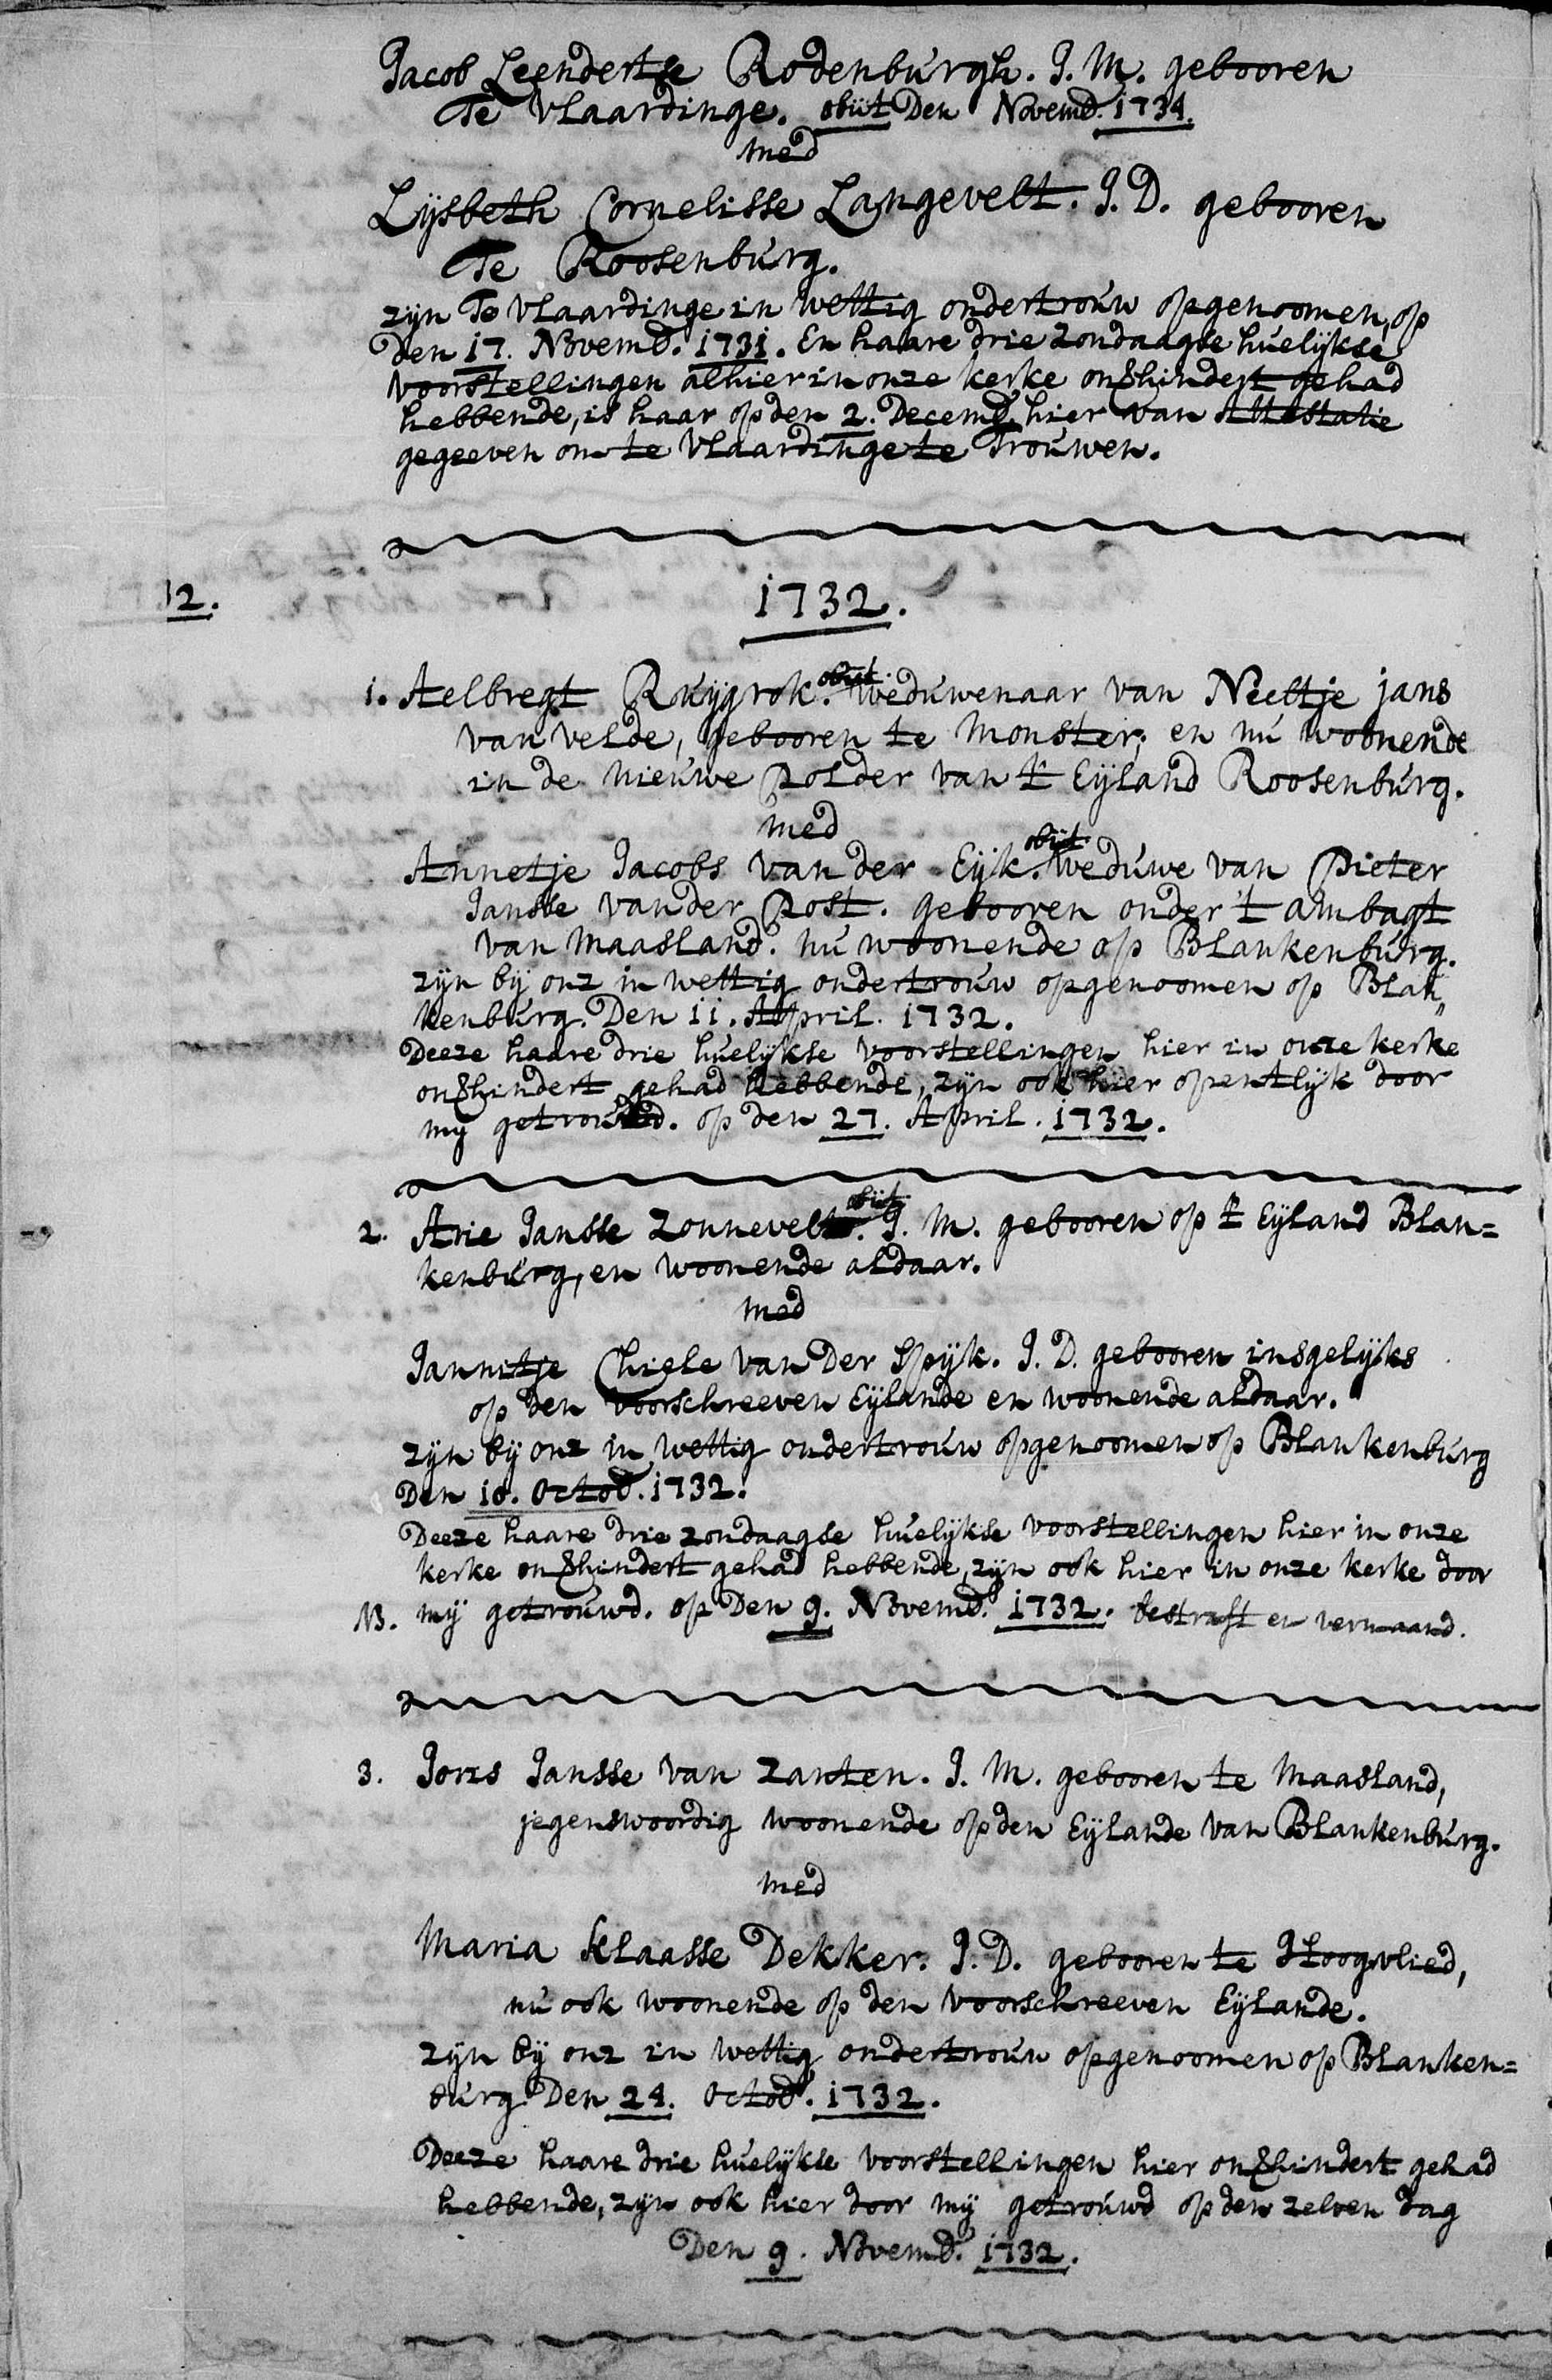 Jacob Leendertse Rodenburgh. J. M. gebooren
te Vlaardinge. obiit Den Novemb. 1734.
med
Lijsbeth Cornelisse Langevelt. J. D. gebooren
te Roosenburg.
zijn te Vlaardinge in wettig ondertrouw opgenoomen, op
Den 17. Novemb. 1731. En haare drie zondaagse huelijkse
voorstellingen alhier in onze kerke onverhindert gehad
hebbende, is haar op den 2. Decemb. hier van Attestatie
gegeeven om te Vlaardinge te Trouwen.
32.
1732.
1. Aelbregt Ruijgrok. obiit. weduwenaar van Neeltje jans
van velde, gebooren te Monster, en nu woonende
in de nieuwe polder van 't Eijland Roosenburg.
med
Annetje Jacobs van der Eijk. obiit. weduwe van Pieter
Jansse vander Post. gebooren onder 't ambagt
van Maasland. nu woonende op Blankenburg.
zijn bij onz in wettig ondertrouw opgenoomen op Blan„
kenburg. Den 11. April. 1732.
Deeze haare drie huelijkse voorstellingen hier in onze kerke
onverhindert gehad hebbende, zijn ook hier opentlijk door
mij getrouwd. op den 27. April. 1732.
2. Arie Jansse Zonnevelt. obiit. J. M. gebooren op 't Eijland Blan=
kenburg, en woonende aldaar.
med
Jannitje Chiele van Der Spijk. J. D. gebooren insgelijks
op den voorschreeven Eijlande en woonende aldaar.
zijn bij onz in wettig ondertrouw opgenoomen op Blankenburg
Den 10. Octob. 1732.
Deeze haare drie zondaagse huelijkse voorstellingen hier in onze
kerke onverhindert gehad hebbende, zijn ook hier in onze kerke door
NB. mij getrouwd. op Den 9. Novemb. 1732. bestraft en vermaand.
3. Joris Jansse van Zanten. J. M. gebooren te Maasland,
jegenswoordig woonende op den Eijlande van Blankenburg.
med
Maria Klaasse Dekker. J. D. gebooren te Hoogvlied,
nu ook woonende op den voorschreeven Eijlande.
zijn bij onz in wettig ondertrouw opgenoomen op Blanken=
burg Den 24. Octob. 1732.
Deeze haare drie huelijkse voorstellingen hier onverhindert gehad
hebbende, zijn ook hier door mij getrouwd op den zelven dag
Den 9. Novemb. 1732.